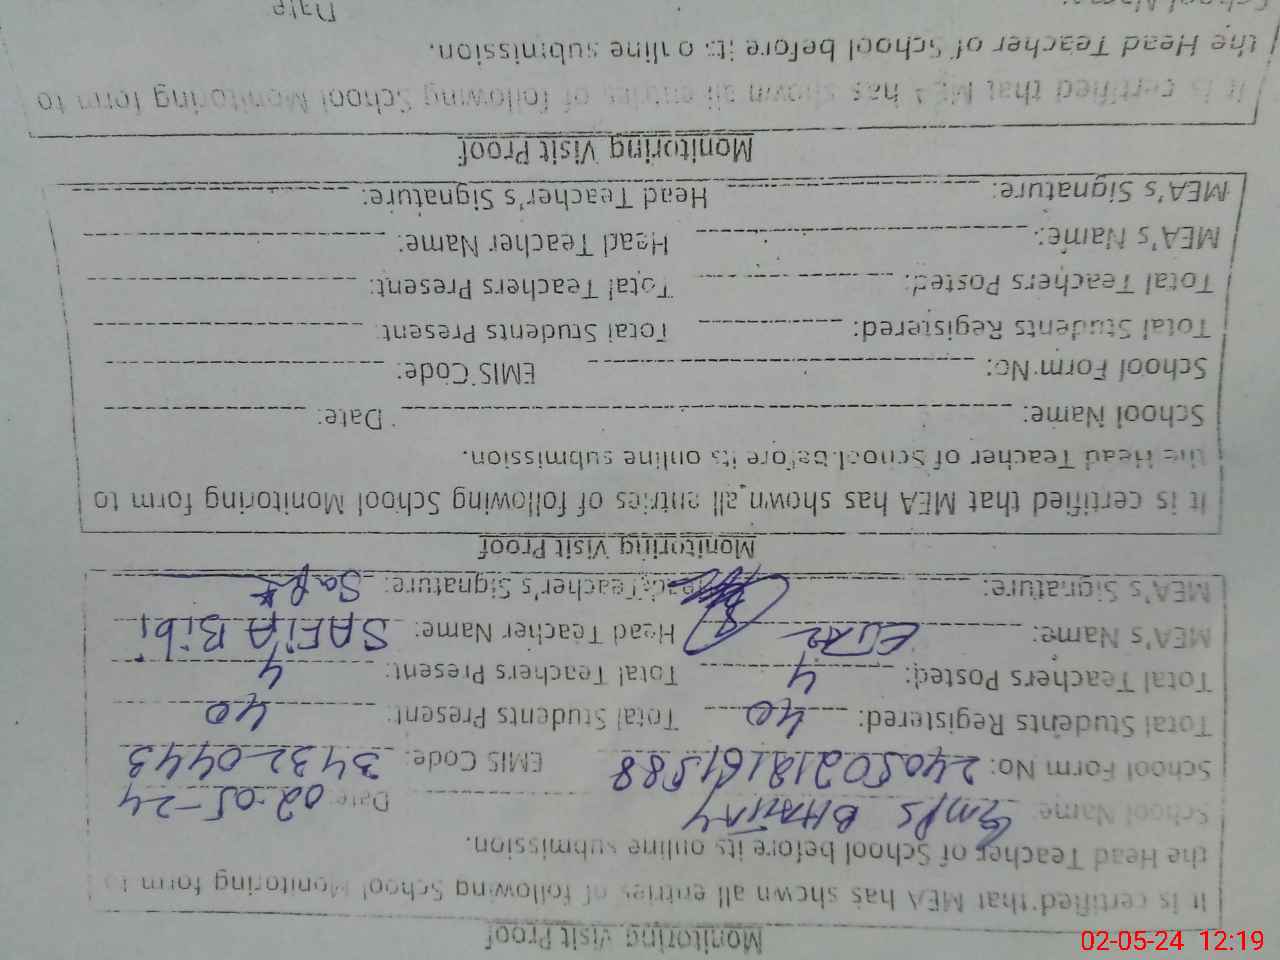 Monitoring Visit Proof
It is certified that MEA has shown all entries of following School Monitoring form to
the Head Teacher of School before its online submission.
School Name: Gmps Date: 02-05-24
School Form No: 24050218161588 EMIS Code: 34320443
Total Students Registered: 40 Total Students Present: 40
Total Teachers Posted: 4 Total Teachers Present: 4
MEA's Name: Head Teacher Name: SAFiA Bibi
MEA's Signature: Head Teacher's Signature:
Monitoring Visit Proof
It is certified that MEA has shown all entries of following School Monitoring form to
the Head Teacher of School before its online submission.
School Name: Date:
School Form No: EMIS Code:
Total Students Registered: Total Students Present:
Total Teachers Posted: Total Teachers Present:
MEA's Name: Head Teacher Name:
MEA's Signature: Head Teacher's Signature:
Monitoring Visit Proof
It is certified that MEA has shown all entries of following School Monitoring form to
the Head Teacher of School before its online submission.
School Name: Date
02-05-24 12:19